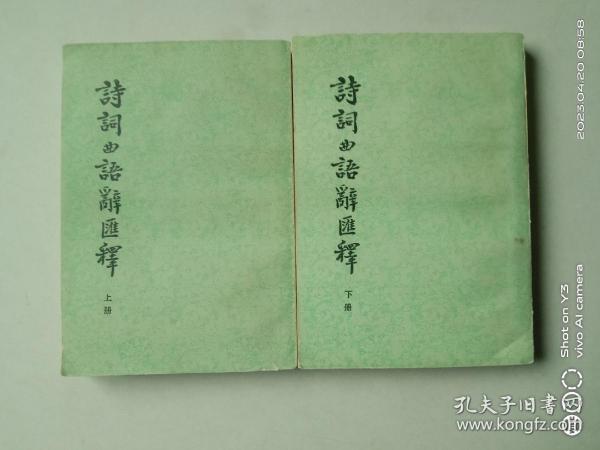 詩詞曲語辭匯釋
上册
詩詞曲語辭匯釋
下册
2023.04.20 08:58
Shot on Y3
vivo AI camera
孔夫子旧书网
www.kongfz.com